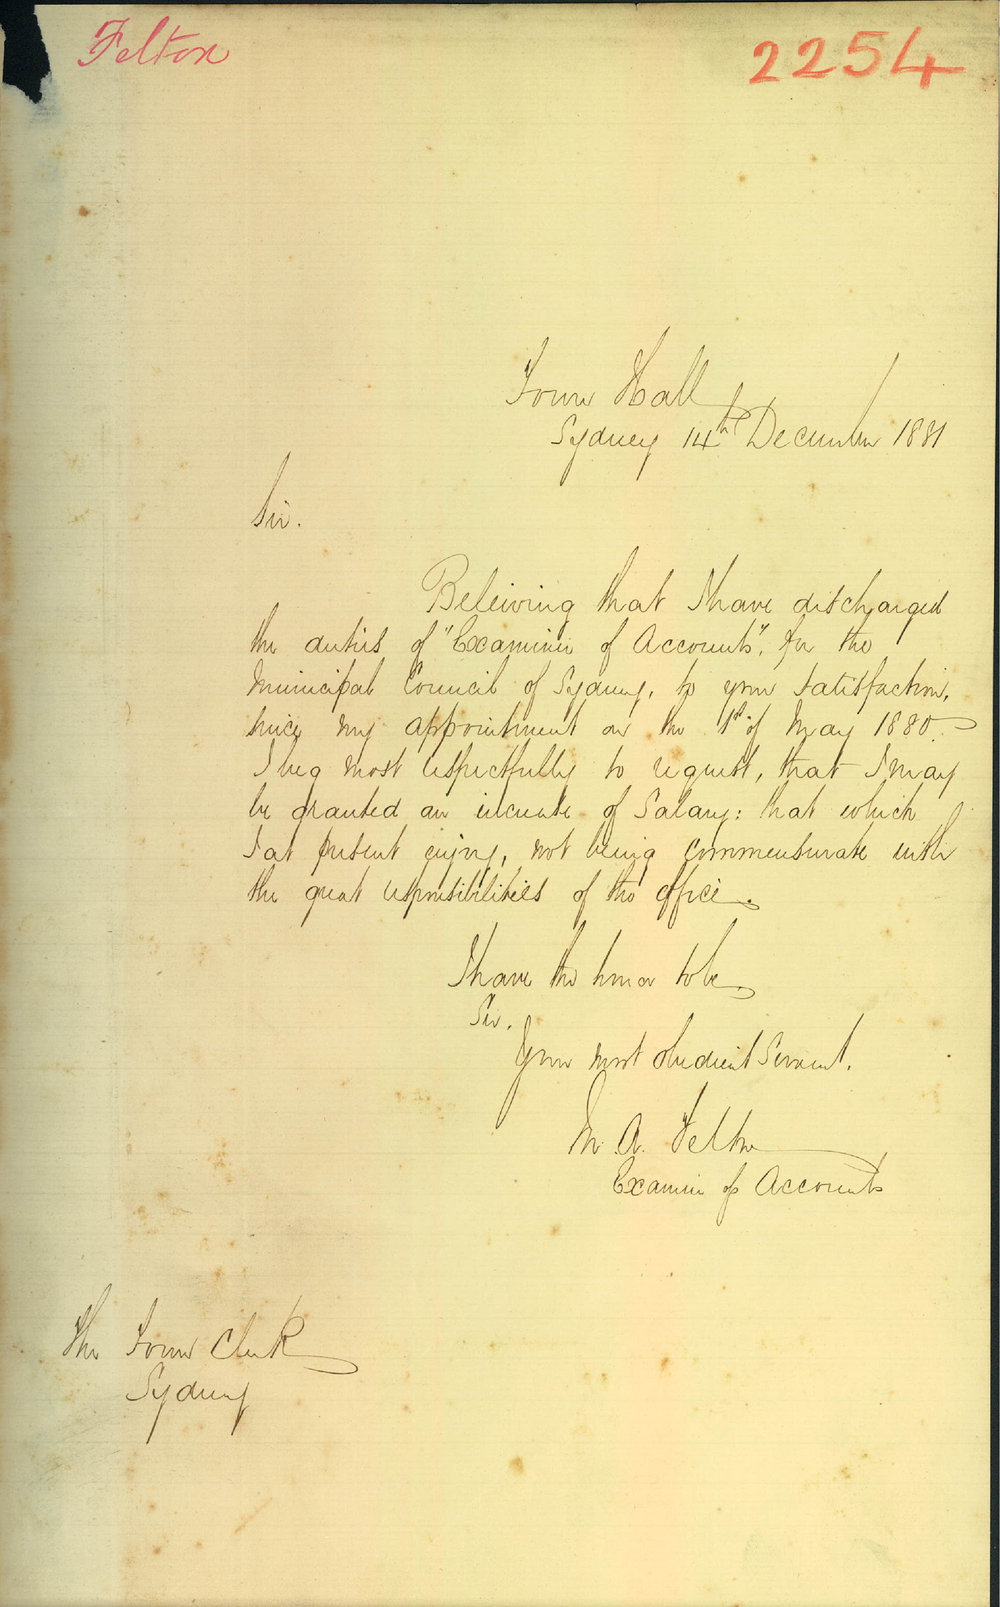 Felton
2254
Town Hall
Sydney 14th December 1881
Sir.
Beleiving that I have discharged
the duties of "Examiner of Accounts", for the
Municipal Council of Sydney, to your satisfaction,
since my appointment on the 1st of May 1880.
I beg most respectfully to request, that I may
be granted an increase of Salary: that which
I at present enjoy, not being commensurate with
the great responsibilities of the office.
I have the honor to be
Sir.
Your most obedient Servant.
M. A. Felton
Examiner of Accounts
The Town Clerk
Sydney